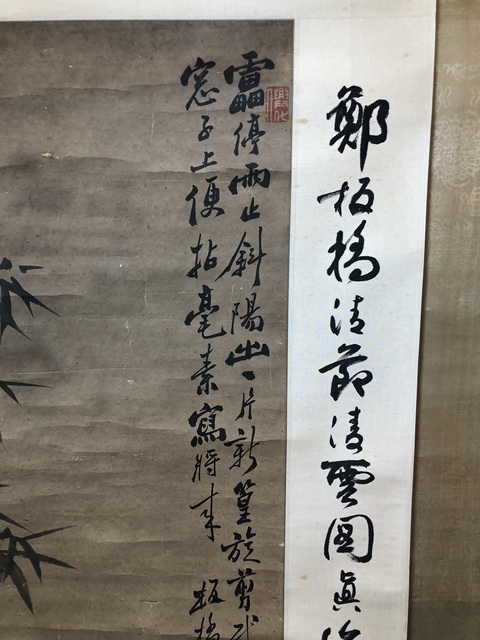 鄭板橋清節淩雲圖真
靁停雨止斜陽出一片新篁旋剪
窓子上便拈毫素寫將來 板橋